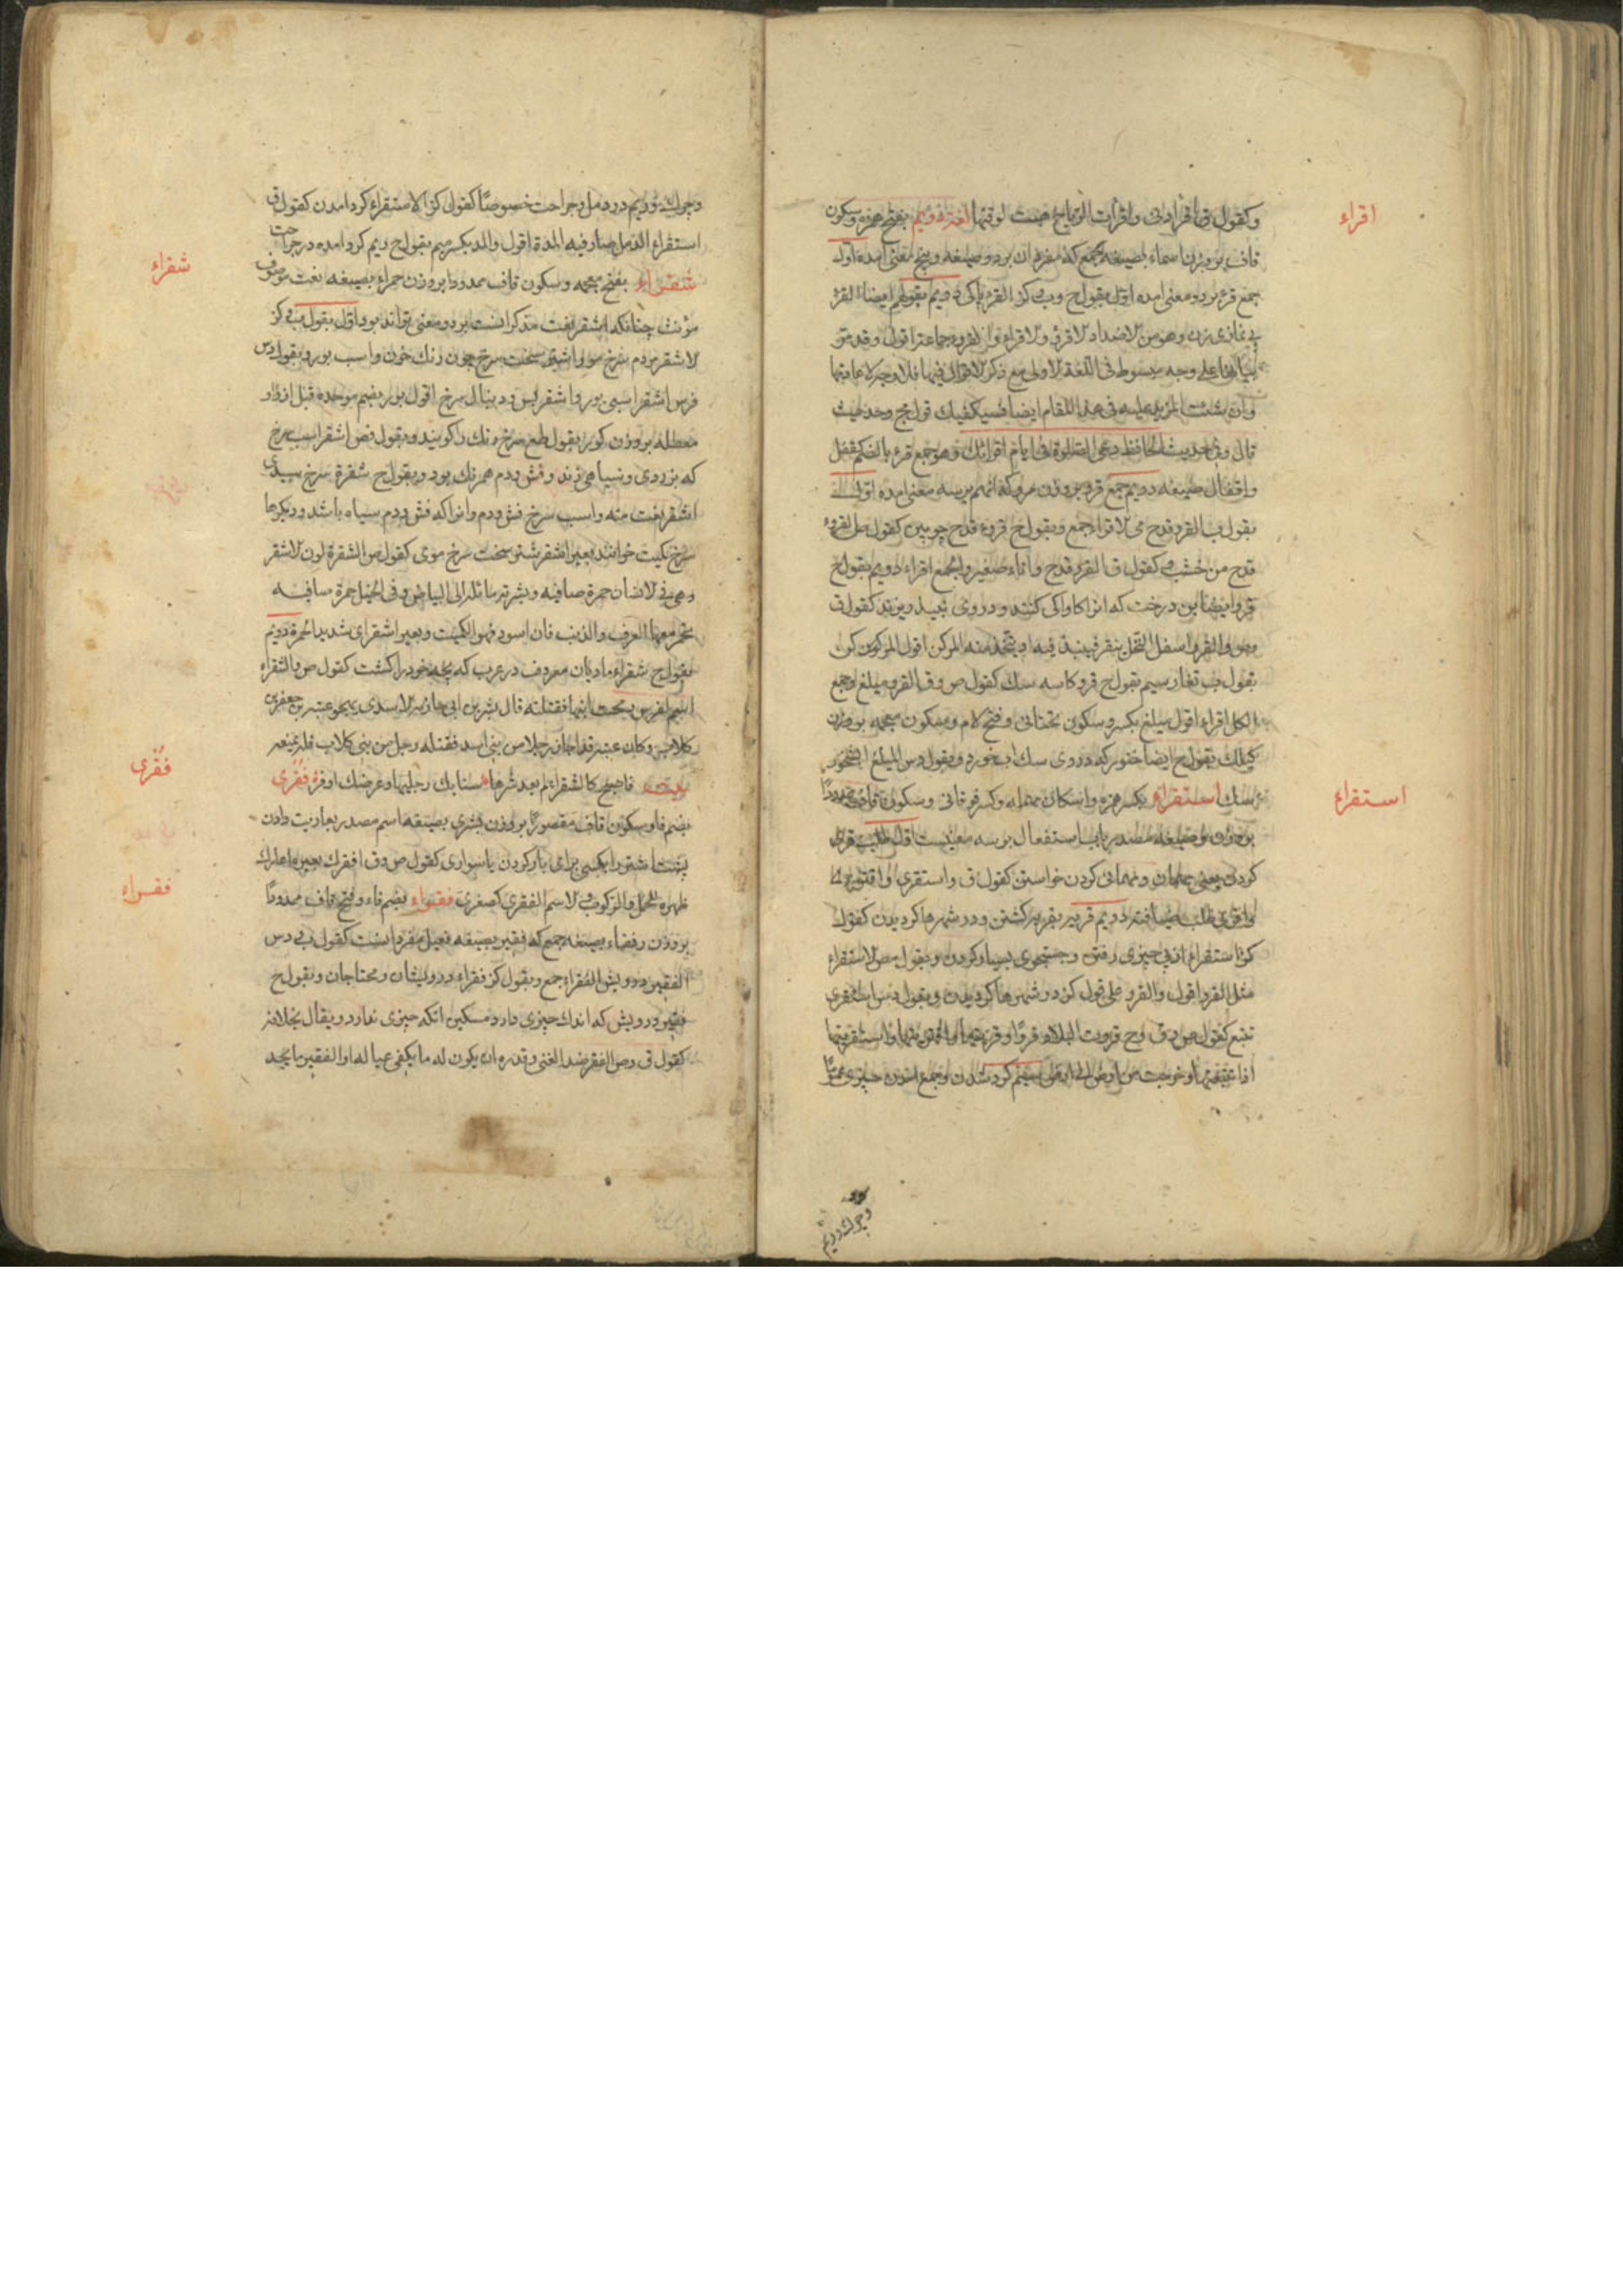 اقراء
وکقول ق اقراءدنی واقرات الریاح هبت لوقتها لغة دویم بفتح همزه وسکون
قاف بر وزن اسماء بصیغه جمع که مفرد ان بر دو صیغه وپنج معنی امده اول
جمع قرء بر دو معنی امده اول بقول ح وب کز القرء پاکی دویم بقولهم ایضا القرء
بی نمازی زن وهو من الاضداد الاقرؤ والاقراء والقروء جماعة اقول وقد مر
بیانها علی وجه مبسوط فی اللغة الاولی مع ذکر الاقوال فیها فلا وجه لاعادتها
وان شئت المزید علیه فی هذا المقام ایضا فسیکفیک قول مج وحدیث
قال وفی حدیث الحافظ دعی الصلوة فی ایام اقرائک وهو جمع قرء بالضم کقفل
واقفال صیغه دویم جمع قرو بر وزن سرو که انهم بر سه معنی امده اول
بقول ب القرو قدح می الاقراء جمع وبقول ح قروء قدح چوبین کقول ص القروء
قدح من خشب کقول ق القرو قدح واناء صغیر والجمع اقراء دویم بقول ح
قرو ایضا بن درخت که انرا کاواکی کنند ودر وی نبیذ ریزند کقول ق
وص والقرو اسفل النخل ینقر فینبذ فیه او یتخذ منه المرکن اقول المرکن کز
بقول ب تغار سیم بقول ح قرو کاسه سک کقول ص وق القرو میلغ وجمع
الکل اقراء اقول میلغ بکسر وسکون تحتانی وفتح لام وسکون معجمه بر وزن
بقول ح ایضا خنور که در وی سک اب خورد وبقول دس المیلغ ابشخور
سک استقراء بکسر همزه واسکان مهمله وکسر فوقانی وسکون قاف ممدودا
استقراء
بر وزن وصیغه مصدر باب استفعال بر سه معنیست اول طلب قری
کردن یعنی مهمان ومهمانی کردن خواستن کقول ق واستقری واقتری
واقری طلب ضیافة دویم قریه بقریه کشتن ودر شهرها کردیدن کقول
کز استقراء از پی چیزی رفتن وجستجوی بسیار کردن وبقول ص الاستقراء
مثل القرو اقول والقرو علی قول کز در شهرها کردیدن وبقول دس استقری
تتبع کقول ص وق وح قروت البلاد قروا وقریتها واقتریتها واستقریتها
اذا تتبعتها وخرجت من ارض الی ارض سیم کرد شدن وجمع امدن چیزی عموما
وچرک وریم
وچرک وریم در دمل وجراحت خصوصا کقول کز الاستقراء کرد امدن کقول ق
استقراء الدمل صار فیه المدة اقول والمدة بکسر میم بقول ح ریم کرد امده در جراحت
شقراء
شقراء بفتح معجمه وسکون قاف ممدودا بر وزن حمراء بصیغه نعت موصوف
مؤنث چنانکه اشقر نعت مذکر انست بر دو معنی تواند بود اول بقول ب کز
الاشقر مردم سرخ مو واشتر سخت سرخ چون رنک خون واسب بور وبقول دس
فرس اشقر اسبی بور واشقر یس ودینال سرخ اقول بور بضم موحده قبل از واو
معطله بر وزن کور بقول طع سرخ رنک را کویند وبقول فص اشقر اسب سرخ
که بزردی وسیاهی زند وفش ودم همرنک بود وبقول ح شقرة سرخ سپیدی
اشقر نعت منه واسب سرخ فش ودم وانرا که فش ودم سیاه باشد ودیکرها
سرخ کمیت خوانند بعیر اشقر شتر سخت سرخ موی کقول ص الشقرة لون الاشقر
وهی فی الانسان حمرة صافیة وبشرته مائلة الی البیاض وفی الخیل حمرة صافیة
یحمر معها العرف والذنب فان اسود فهو الکمیت وبعیر اشقر ای شدید الحمرة دویم
بقول ح شقراء مادیان معروف در عرب که بچه خود را کشت کقول ص والشقراء
اسم فرس رمحت ابنها فقتلته قال بشر بن ابی خازم الاسدی یهجو عتبة بن جعفر بن
کلاب وکان عتبة قد اجار رجلا من بنی اسد فقتله رجل من بنی کلاب فلم یمنعه
بیت فاصبح کالشقراء لم یعد شرها سنابک رجلیها وعرضک اوفر فقری
فقری
بضم فا وسکون قاف مقصورا بر وزن بشری بصیغه اسم مصدر بعاریت دادن
پشت شتر را بکسی برای بار کردن یا سواری کقول ص وق افقرک بعیره اعارک
ظهره للحمل والرکوب والاسم الفقری کصغری فقراء بضم فاء وفتح قاف ممدودا
فقراء
بر وزن رفقاء بصیغه جمع که فقیر بصیغه فعیل مفرد انست کقول ب دس
الفقیر درویش الفقراء جمع وبقول کز فقراء درویشان ومحتاجان وبقول ح
فقیر درویش که اندک چیزی دارد مسکین انکه چیزی ندارد ویقال بخلافه
کقول ق وص الفقر ضد الغنی وقدره ان یکون له ما یکفی عیاله او الفقیر ما یجد